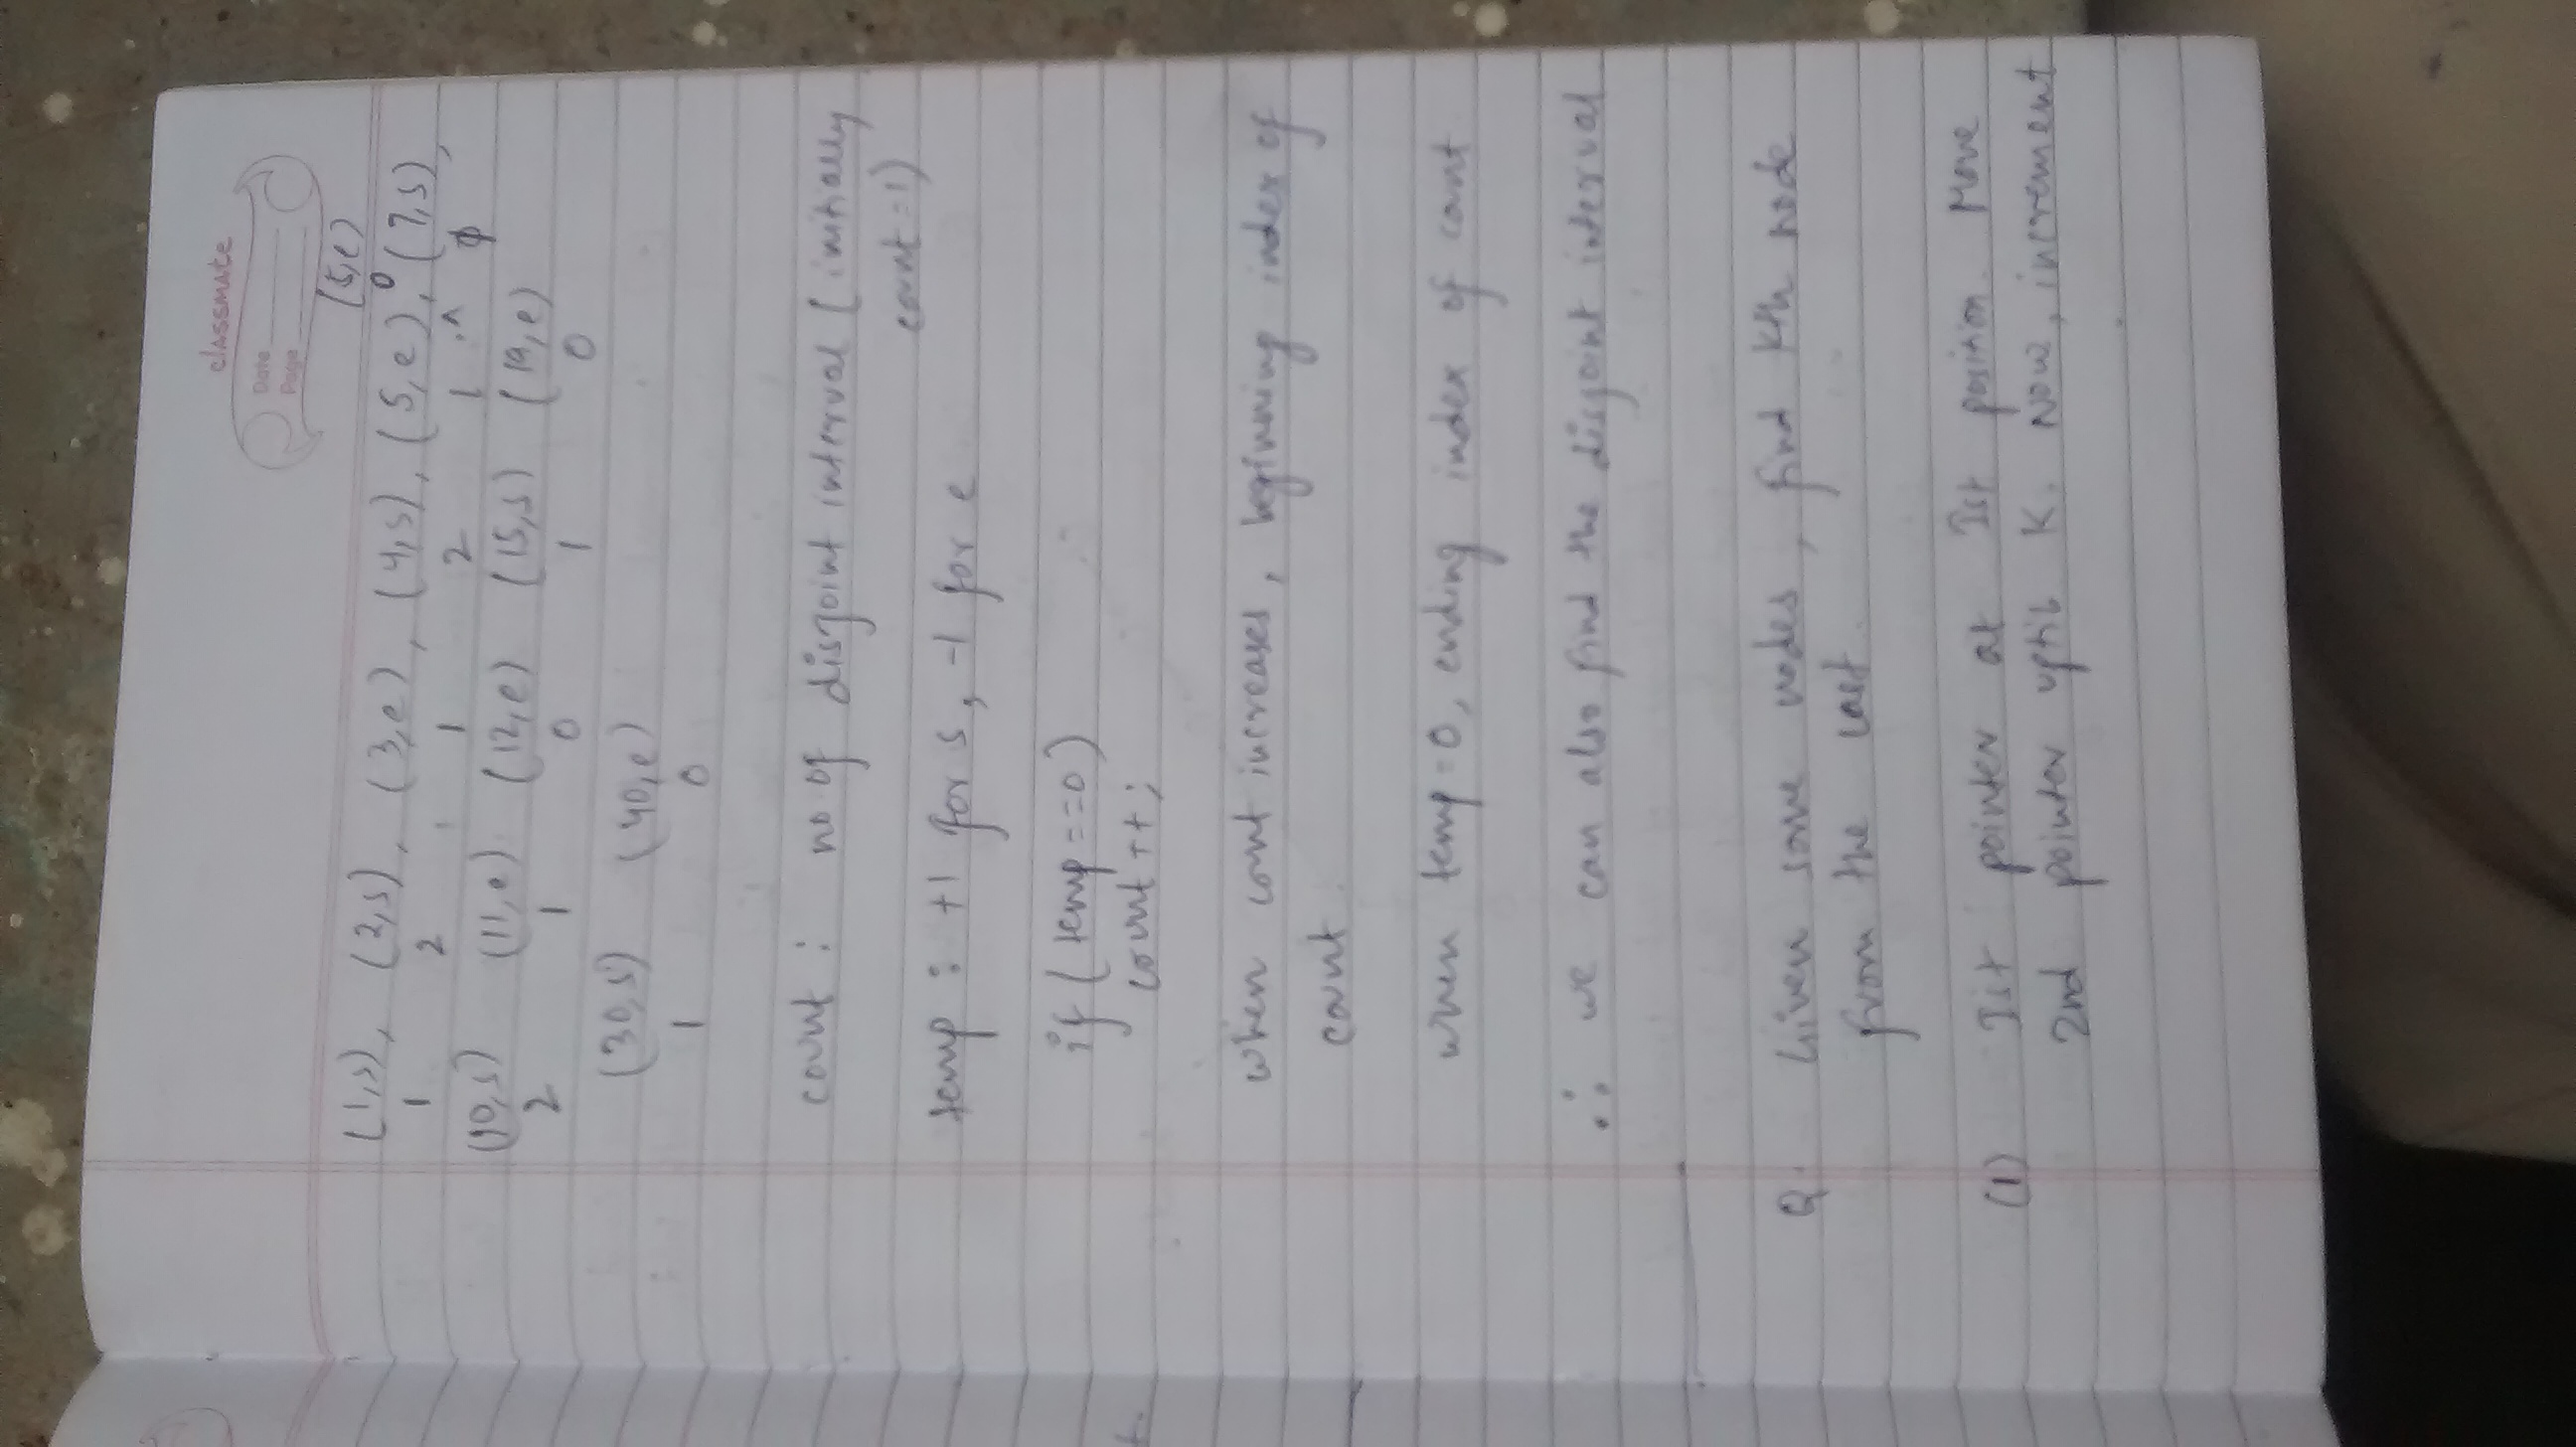 classmate
Date
Page
(5,e)
(1,s), (2,s), (3,e), (4,s), (5,e), (7,s),
1 2 1 2 1 0
(10,s) (11,e) (12,e) (15,s) (19,e)
2 1 0 1 0
(30,s) (40,e)
1 0
count : no of disjoint interval (initially
count=1)
temp : +1 for s, -1 for e
if (temp==0)
count++;
when count increases, beginning index of
count
when temp=0, ending index of count
∴ we can also find the disjoint interval
Q. Given some nodes, find Kth node
from the last.
(1) Ist pointer at Ist position. Move
2nd pointer uptil K. Now, increment